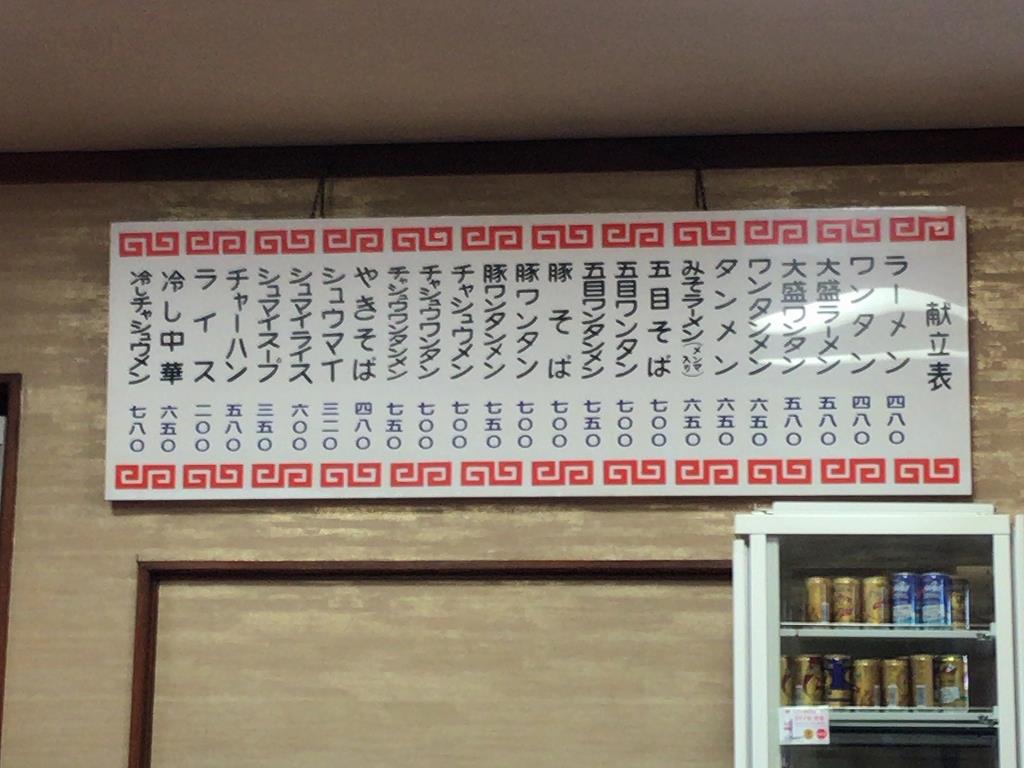 献立表
ラーメン 四八〇
ワンタン 四八〇
大盛ラーメン 五八〇
大盛ワンタン 五八〇
ワンタンメン 六五〇
タンメン 六五〇
みそラーメン(メンマ入り) 六五〇
五目そば 七〇〇
五目ワンタン 七〇〇
五目ワンタンメン 七五〇
豚そば 七〇〇
豚ワンタン 七〇〇
豚ワンタンメン 七五〇
チャシュウメン 七〇〇
チャシュウワンタン 七〇〇
チャシュウワンタンメン 七五〇
やきそば 四八〇
シュウマイ 三二〇
シュマイライス 六〇〇
シュマイスープ 三五〇
チャーハン 五八〇
ライス 二〇〇
冷し中華 六五〇
冷しチャシュウメン 七八〇